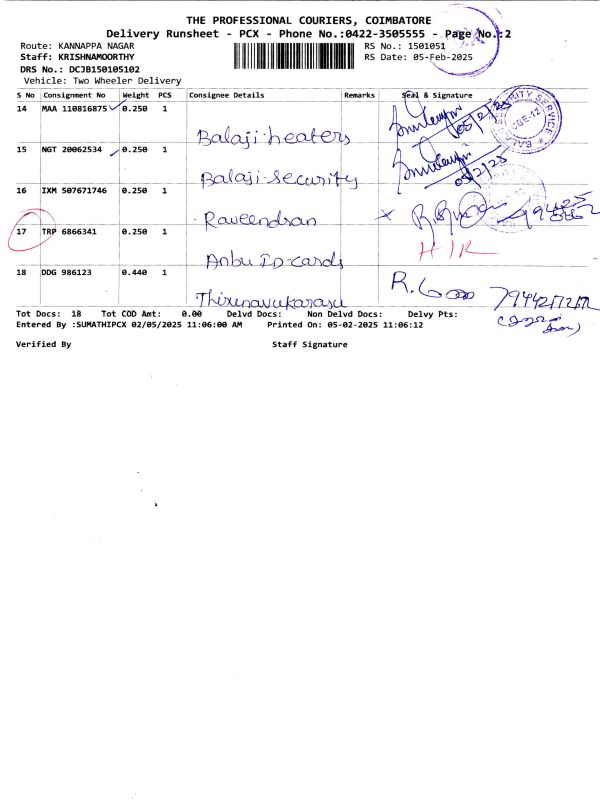 THE PROFESSIONAL COURIERS, COIMBATORE
Delivery Runsheet - PCX - Phone No.:0422-3505555 - Page No.:2
Route: KANNAPPA NAGAR
RS No.: 1501051
Staff: KRISHNAMOORTHY
RS Date: 05-Feb-2025
DRS No.: DCJB150105102
Vehicle: Two Wheeler Delivery
S No Consignment No Weight PCS Consignee Details Remarks Seal & Signature
14 MAA 110816875 0.250 1
Balaji heaters
05/2/25
15 NGT 20062534 0.250 1
Balaji security
05/2/25
16 IXM 507671746 0.250 1
Raveendran
17 TRP 6866341 0.250 1
HIR
Anbu ID-cards
18 DDG 986123 0.440 1
Thirunavukarasu
Tot Docs: 18 Tot COD Amt: 0.00 Delvd Docs: Non Delvd Docs: Delvy Pts:
Entered By :SUMATHIPCX 02/05/2025 11:06:00 AM Printed On: 05-02-2025 11:06:12
Verified By Staff Signature